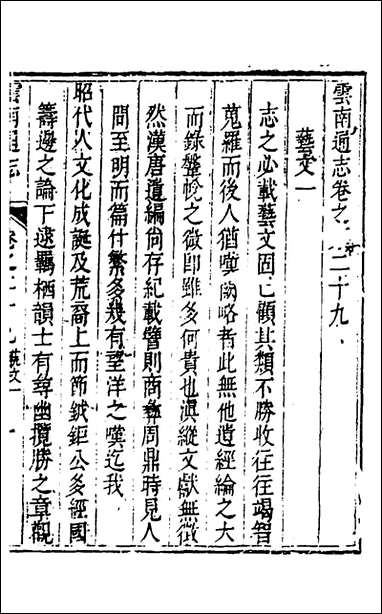 雲南通志卷之二十九
藝文一
志之必載藝文固已顧其類不勝收往往竭智
蒐羅而後人猶嘆闕略者此無他遺經綸之大
而錄鞶帨之微即雖多何貴也滇縱文獻無徵
然漢唐遺編尚存紀載譬則商彝周鼎時見人
間至明而篇什繁多幾有望洋之嘆迄我
昭代人文化成誕及荒裔上而節鉞鉅公多經國
籌邊之論下逮羈栖韻士有尋幽攬勝之章觀
雲南通志
卷之二十九 藝文一
一